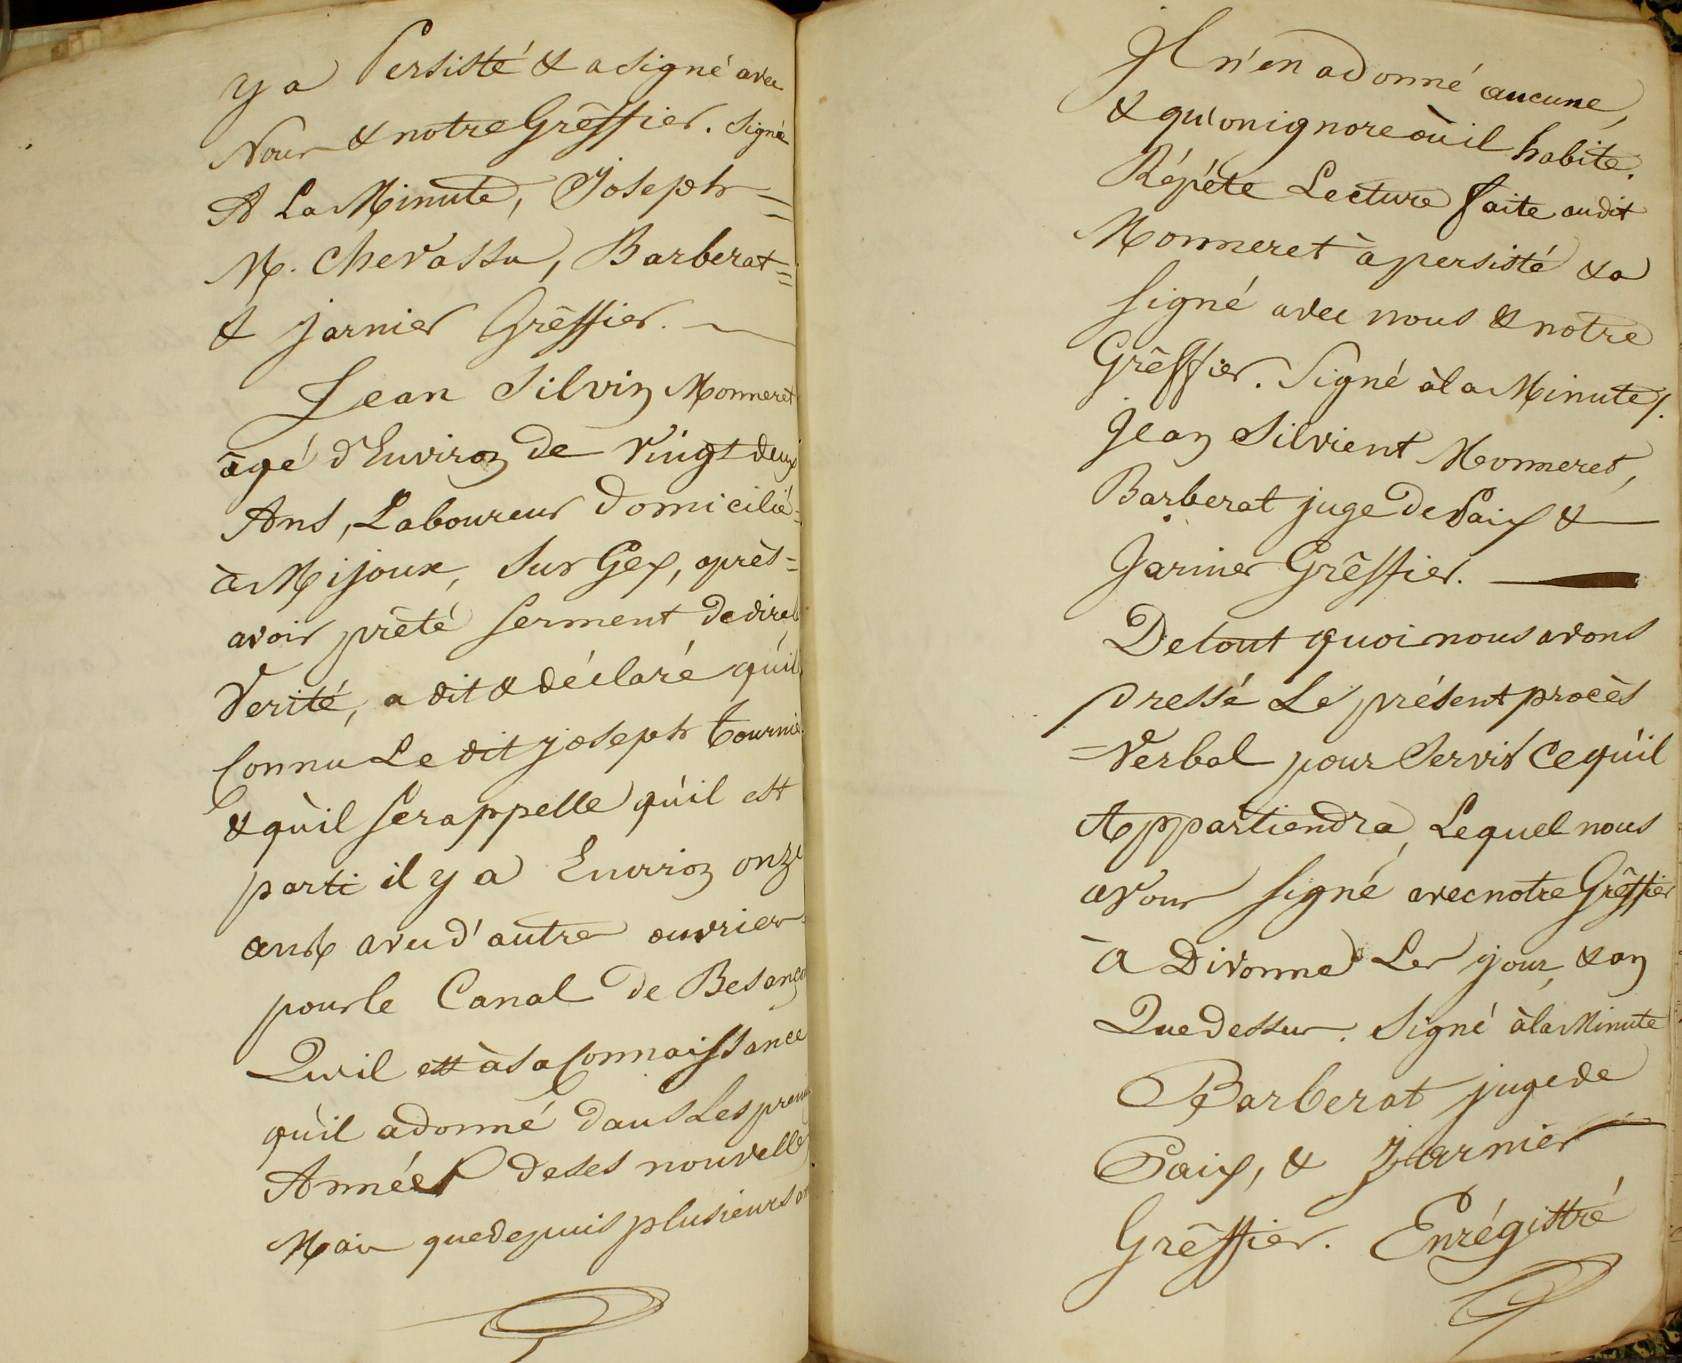 y a Persisté & a signé avec
Nous & notre Grêffier. signé
A La Minute, Joseph =
M. Chevassu, Barberat =
& Jarnier Grêffier.
Jean Silvin Monneret
âgé d'Environ de vingt deux
Ans, Laboureur Domicilié =
à Mijoux, sur Gex, après =
avoir prêté serment de dire
Verité, a dit & déclaré qu'il
Connu Le dit joseph Tournier
& qu'il se rappelle qu'il est
parti il y a Environ onze
ans avec d'autre ouvrier
pour le Canal de Besançon
Qu'il est à sa Connaissance
qu'il a donné dans Les prem
Années de ses nouvelle
Mais que depuis plusieurs an
Il n'en a donné aucune,
& qu'on ignore où il habite.
Répéte Lecture faite audit
Monneret à persisté & a
signé avec nous & notre
Grêffier. Signé à la Minute /.
Jean Silvient Monneret,
Barberat juge De Paix &
Jarnier Grêffier.
De tout quoi nous avons
Dressé Le présent procès
= Verbal pour Servir Ce qu'il
Appartiendra, Lequel nous
avons signé avec notre Grêffier
à Divonne Les jour, & an
Que dessus. Signé à la Minute
Barberat juge de
Paix, & Jarnier
Grêffier. Enrégistré